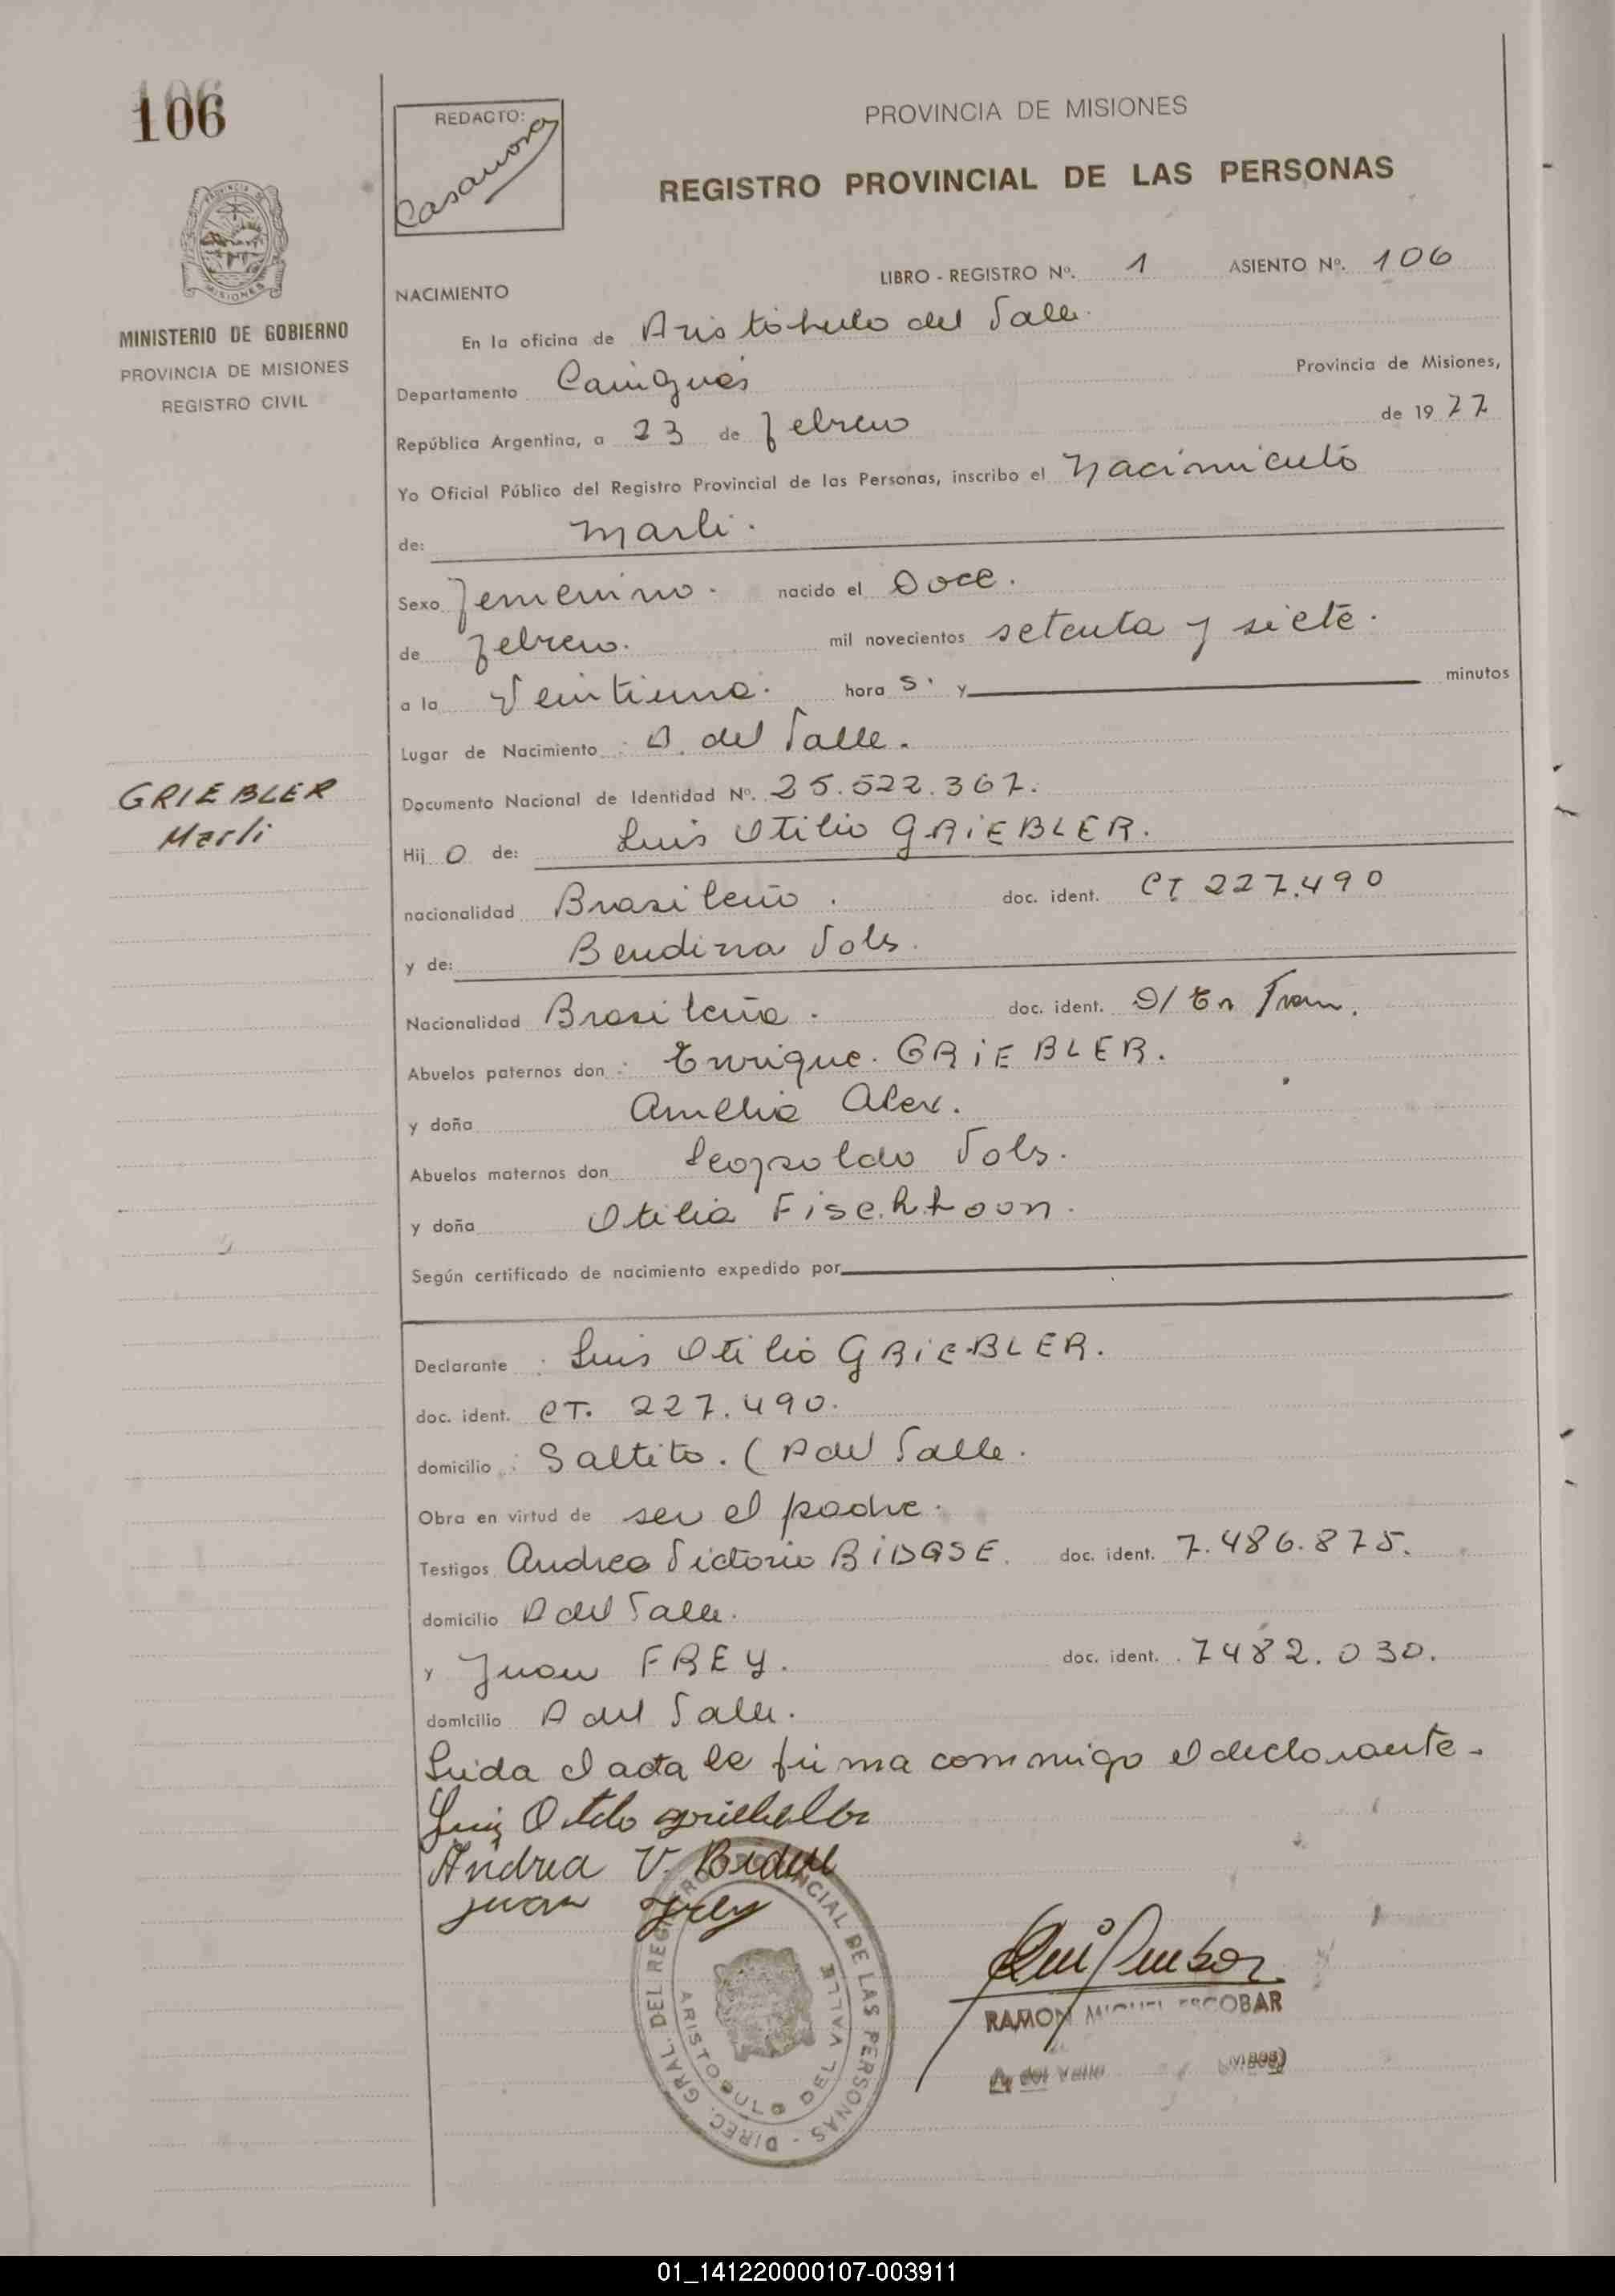 106
REDACTO:
Casanova
PROVINCIA DE MISIONES
REGISTRO PROVINCIAL DE LAS PERSONAS
LIBRO - REGISTRO Nº. 1 ASIENTO Nº. 106
NACIMIENTO
MINISTERIO DE GOBIERNO
PROVINCIA DE MISIONES
REGISTRO CIVIL
En la oficina de Aristóbulo del Valle.
Departamento Cainguás Provincia de Misiones,
República Argentina, a 23 de febrero de 1977
Yo Oficial Público del Registro Provincial de las Personas, inscribo el nacimiento
de: Marli.
Sexo femenino. nacido el Doce.
de febrero. mil novecientos setenta y siete.
a la Veintiuna. hora s. y minutos
Lugar de Nacimiento : A. del Valle.
Documento Nacional de Identidad Nº. 25.522.367.
GRIEBLER
Marli
Hij o de: Luis Otilio GRiEBLER.
nacionalidad Brasileño. doc. ident. CI 227.490
y de: Bendina Vols.
Nacionalidad Brasileña. doc. ident. D/ En Tram.
Abuelos paternos don : Enrique. GRiEBLER.
y doña Amelia Alex.
Abuelos maternos don Leopoldo Vols.
y doña Otilia
Según certificado de nacimiento expedido por
Declarante : Luis Otilio GRiEBLER.
doc. ident. CI. 227.490.
domicilio : Saltito. (A del Valle.
Obra en virtud de ser el padre.
Testigos Andrea Victorio doc. ident. 7.486.875.
domicilio A del Valle.
y Juan FREY. doc. ident. 7482.030.
domicilio A del Valle.
Leida el acta la firma conmigo el declarante.
Andrea V.
Juan Frey
DIREC. GRAL. DEL REGISTRO PROVINCIAL DE LAS PERSONAS -
ARISTOBULO DEL VALLE
RAMON MIGUEL ESCOBAR
A. del Valle
01_141220000107-003911